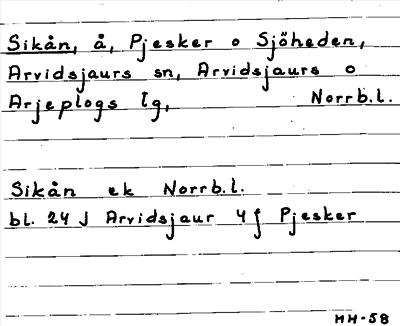 Sikån, å, Pjesker o Sjöheden,
Arvidsjaurs sn, Arvidsjaurs o
Arjeplogs lg, Norrb.l.
Sikån ek Norrb.l.
bl. 24 J Arvidsjaur 4 f Pjesker
HH-58